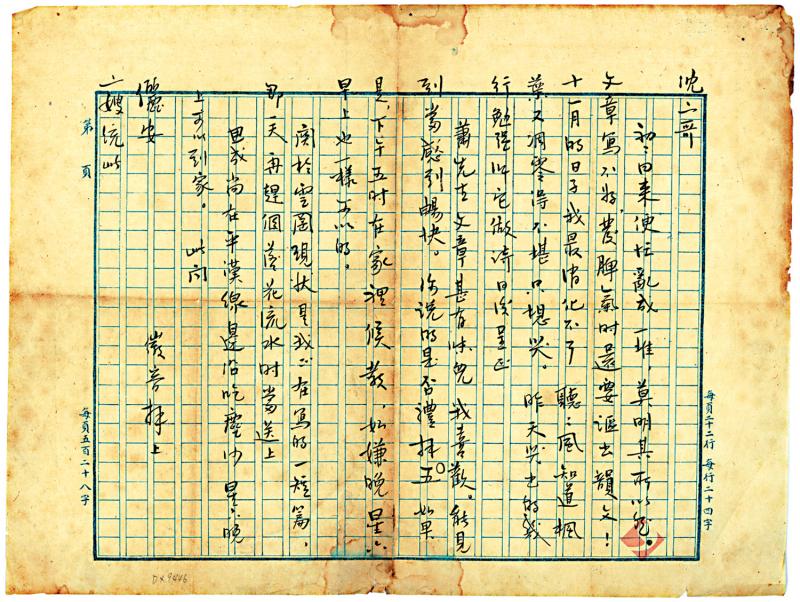 沈二哥
初二回来便忙亂成一堆，莫明其所以然。
文章寫不好，發脾氣时還要謳出韻文！
十一月的日子我最消化不了，聽聽風知道楓
葉又凋零得不堪只想哭。昨天哭出的幾
行勉强叫它做诗日後呈正
蕭先生文章甚有味兒我喜歡。能見
到當感到暢快。你说的是否禮拜五。如果
是，下午五时在家裡候教，如嫌晚星六
早上也一樣可以的。
関於雲岡現状是我正在寫的一短篇，
那一天再趕個落花流水时當送上
思成尚在平漢線邊沿吃塵沙星六晚
上可以到家。
此问
儷安
二嫂统此
徽音拜上
第 頁
每頁二十二行 每行二十四字
每頁五百二十八字
DX9446